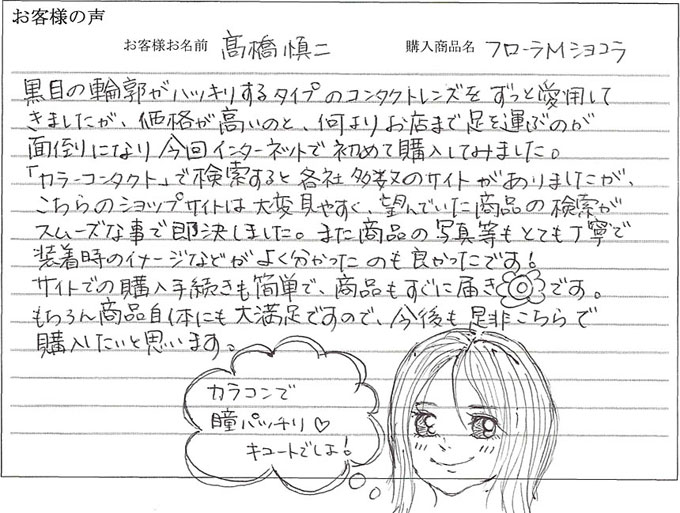 お客様の声
お客様お名前 髙橋慎二 購入商品名 フローラMショコラ
黒目の輪郭がハッキリするタイプのコンタクトレンズをずっと愛用して
きましたが、価格が高いのと、何よりお店まで足を運ぶのが
面倒になり今回インターネットで初めて購入してみました。
「カラーコンタクト」で検索すると各社多数のサイトがありましたが、
こちらのショップサイトは大変見やすく、望んでいた商品の検索が
スムーズな事で即決しました。また商品の写真等もとても丁寧で
装着時のイメージなどがよく分かったのも良かったです!
サイトでの購入手続きも簡単で、商品もすぐに届き◎です。
もちろん商品自体にも大満足ですので、今後も是非こちらで
購入したいと思います。
カラコンで
瞳パッチリ♡
キュートでしょ!